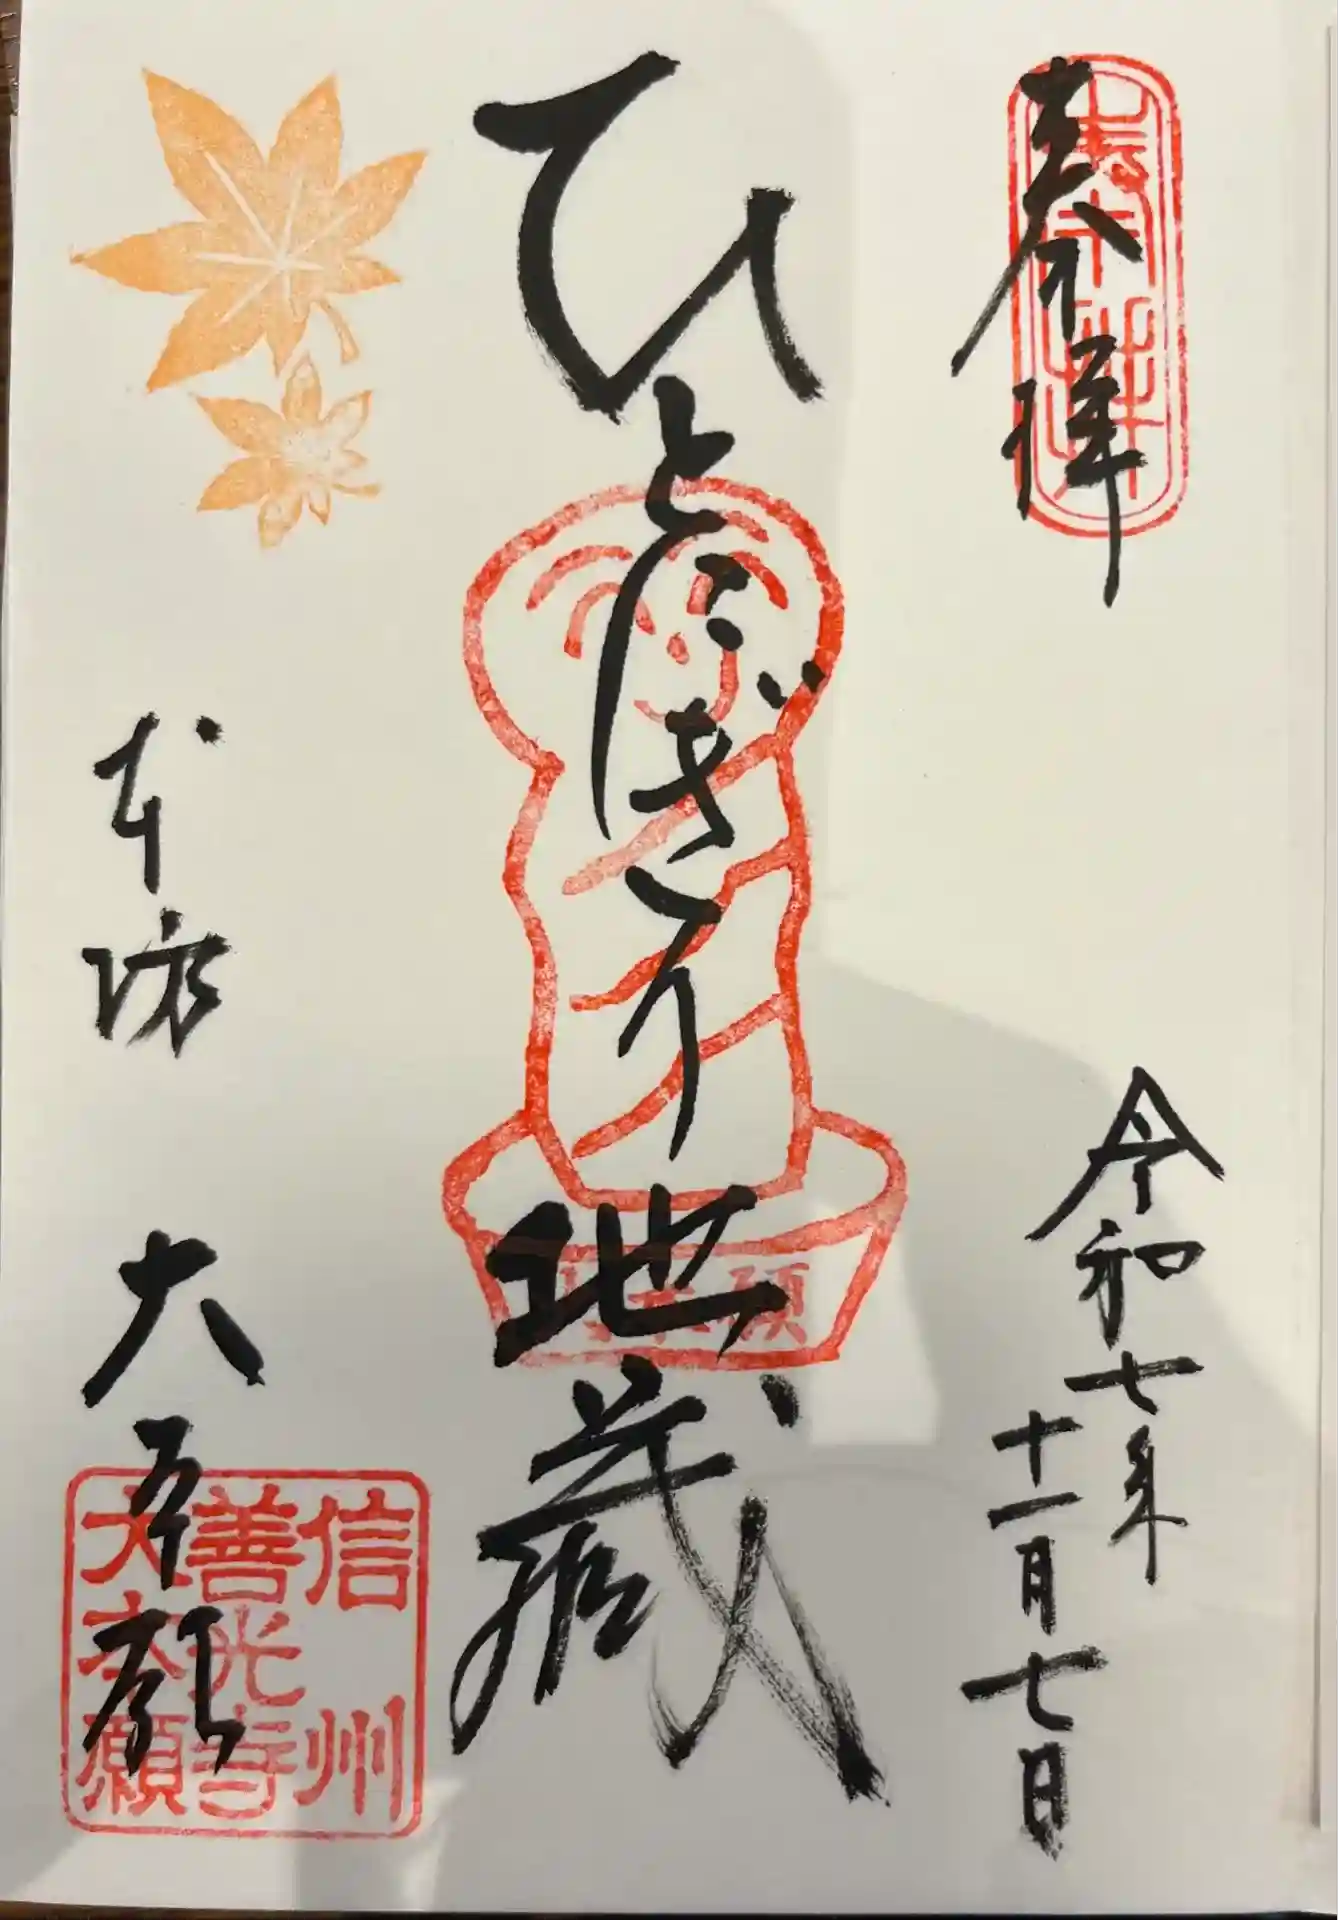 奉拝
奉拝
令和七年
十一月七日
ひとにぎり地蔵
本願
本坊 大本願
信州
善光寺
大本願